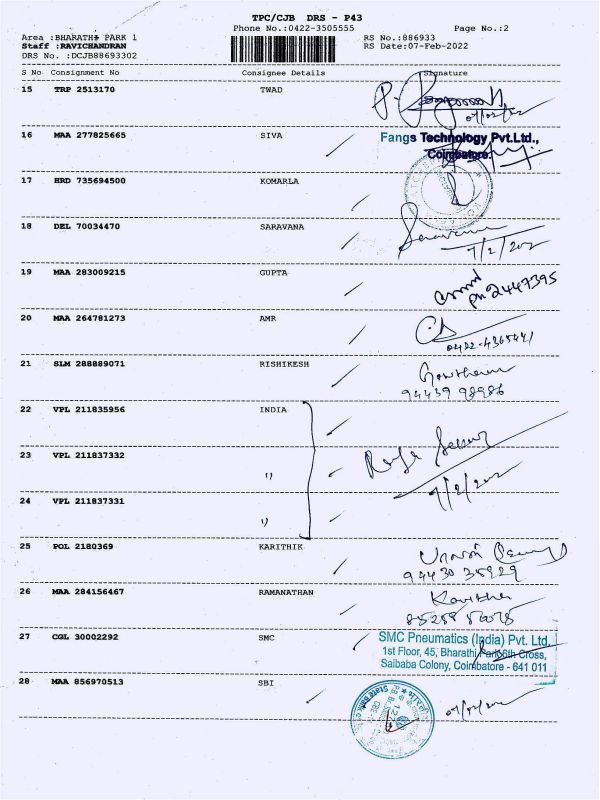 TPC/CJB DRS - P43
Phone No.:0422-3505555 Page No.:2
Area :BHARATHI PARK 1 RS No.:886933
Staff :RAVICHANDRAN RS Date:07-Feb-2022
DRS No. :DCJB88693302
S No Consignment No Consignee Details Signature
15 TRP 2513170 TWAD
16 MAA 277825665 SIVA
Fangs Technology Pvt.Ltd.,
Coimbatore.
17 HRD 735694500 KOMARLA
18 DEL 70034470 SARAVANA
Saravana
7/2/202
19 MAA 283009215 GUPTA
2447395
20 MAA 264781273 AMR
21 SLM 288889071 RISHIKESH
Gowtham
94439 98986
22 VPL 211835956 INDIA
23 VPL 211837332 "
7/2/202
24 VPL 211837331 "
25 POL 2180369 KARITHIK
94430 35929
26 MAA 284156467 RAMANATHAN
Kavitha
27 CGL 30002292 SMC
SMC Pneumatics (India) Pvt. Ltd.
1st Floor, 45, Bharathi Park 6th Cross,
Saibaba Colony, Coimbatore - 641 011
28 MAA 856970513 SBI